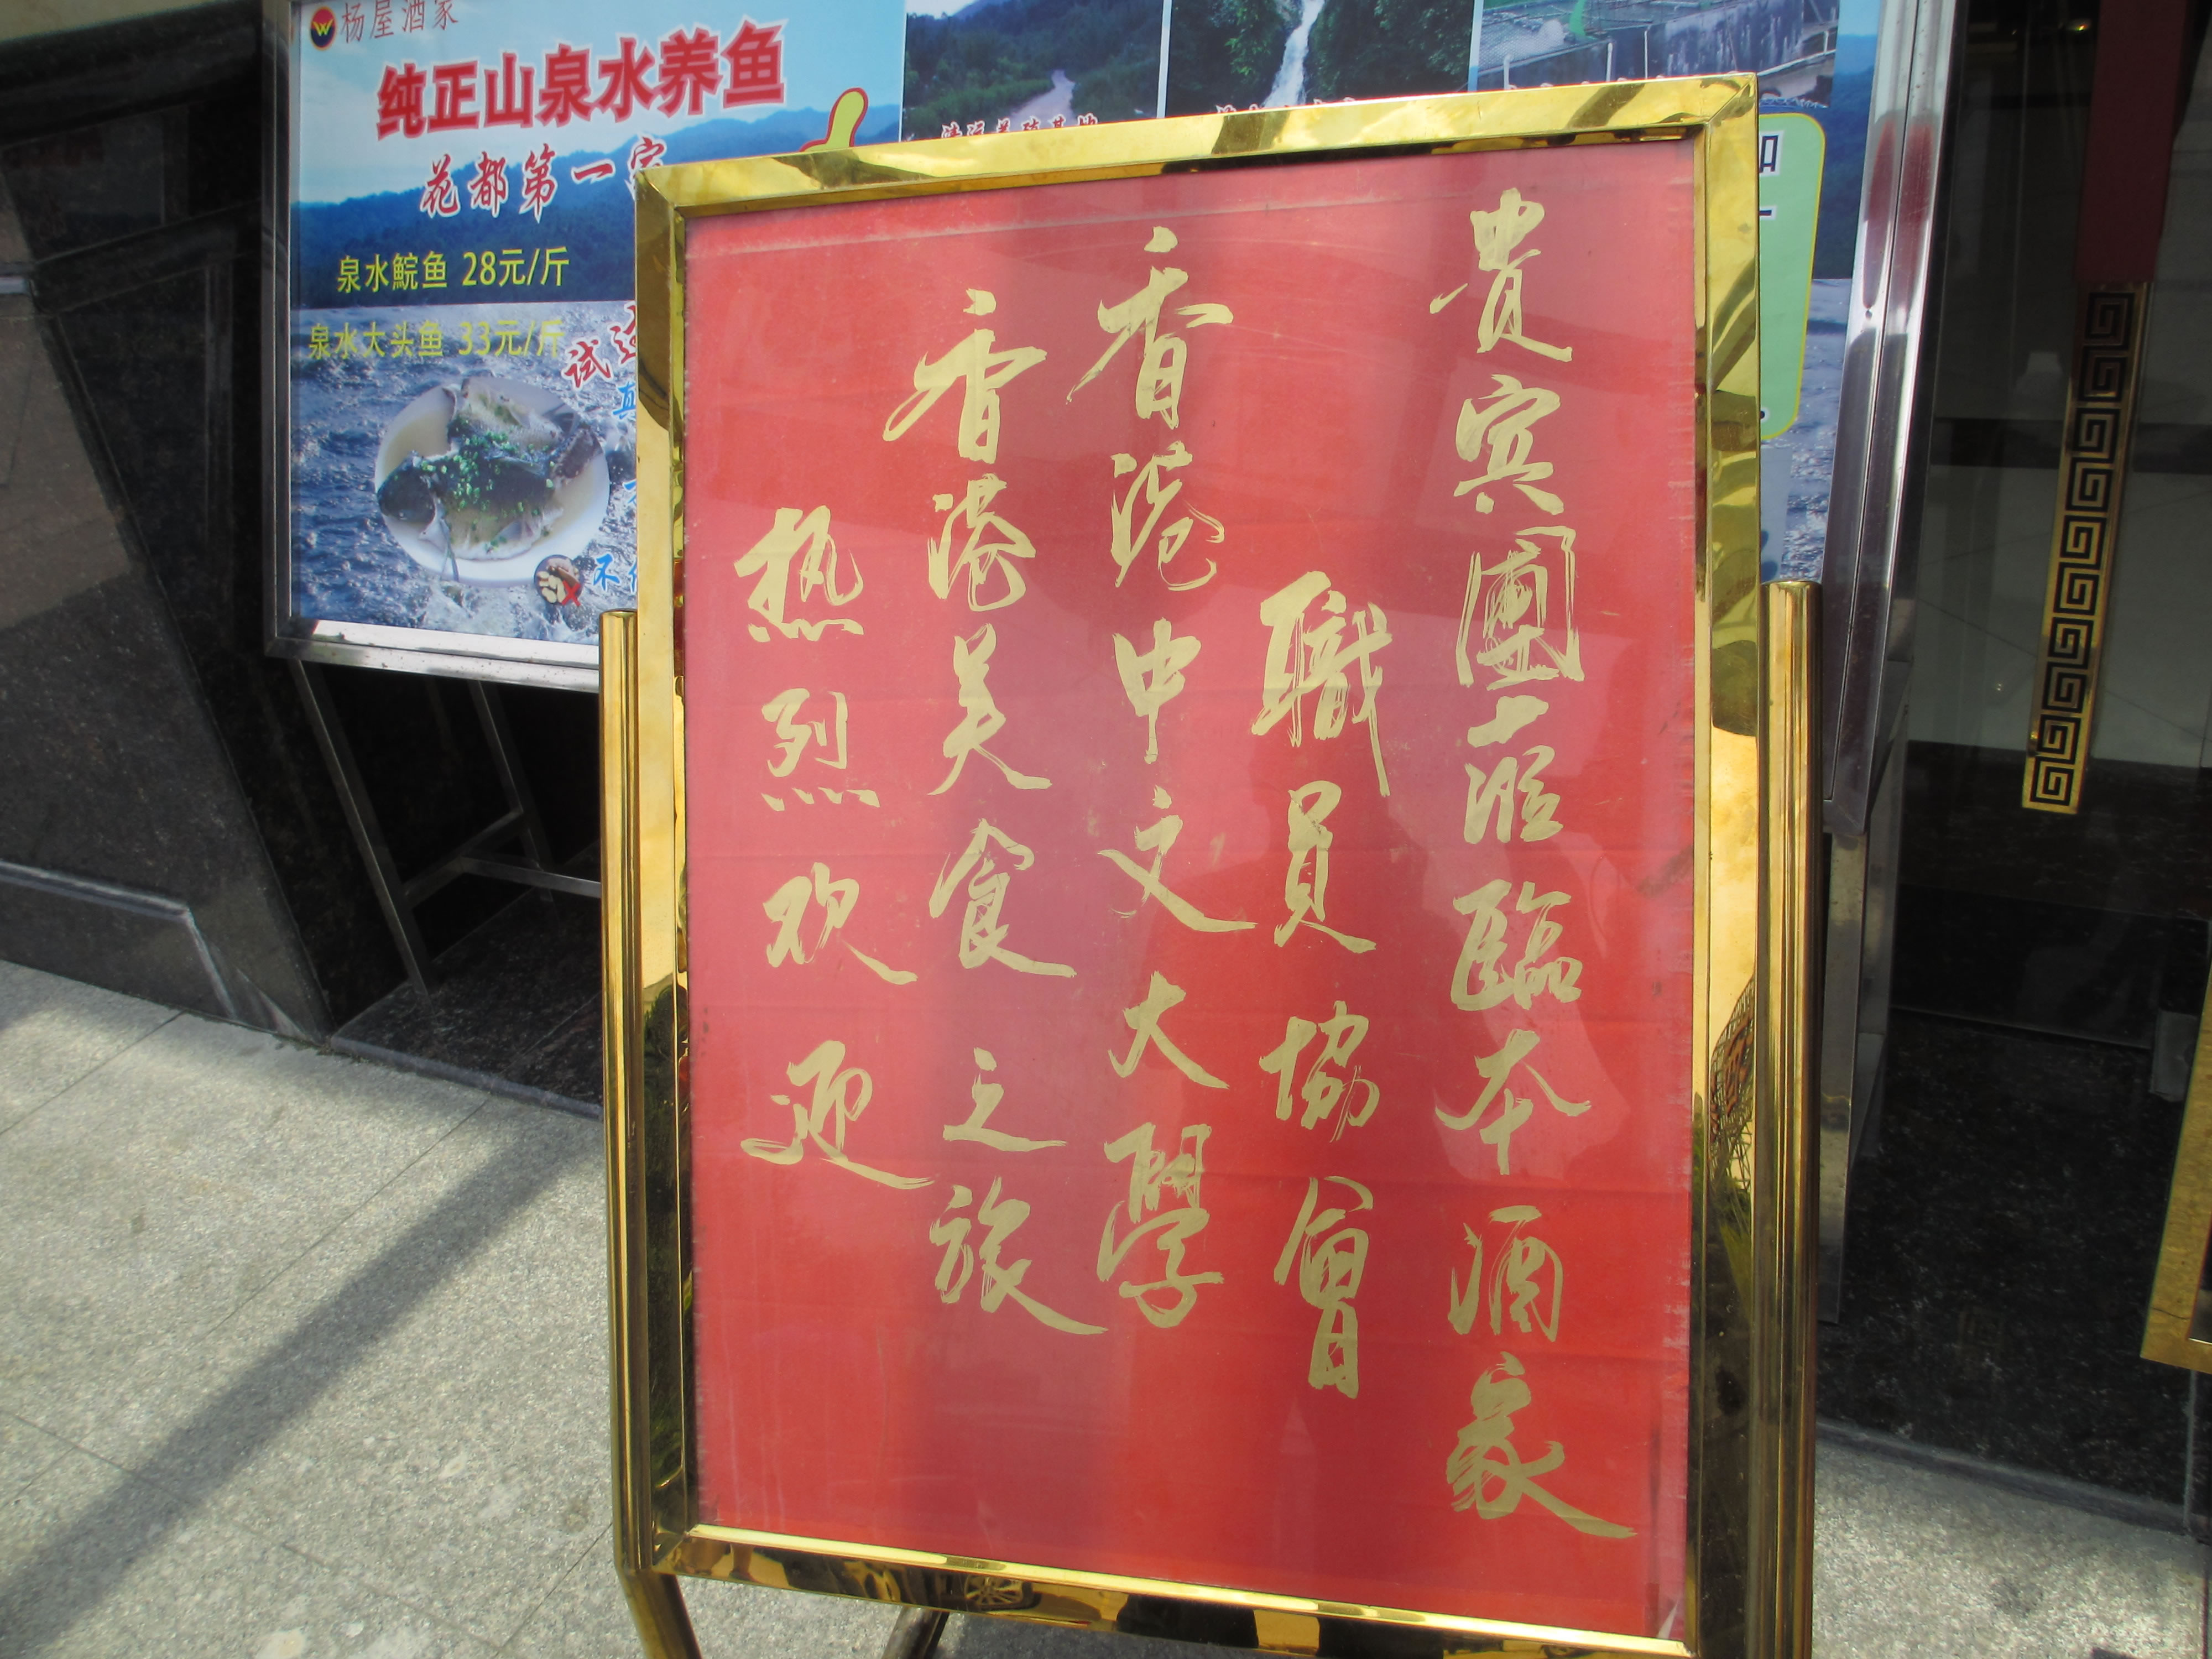 杨屋酒家
纯正山泉水养鱼
花都第一家
泉水鯇鱼 28元/斤
泉水大头鱼 33元/斤
试
不
热烈欢迎
香港美食之旅
香港中文大學
職員協會
貴宾團蒞臨本酒家